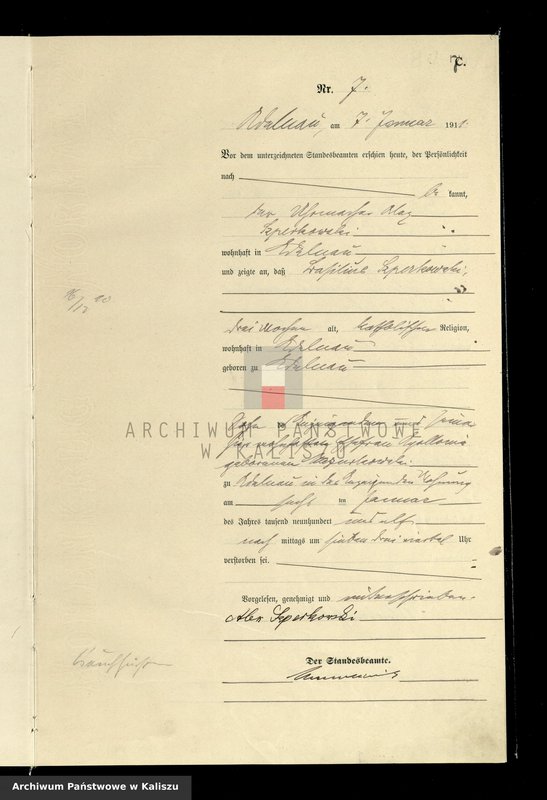 7.
Nr. 7.
Adelnau, am 7. Januar 1911.
Vor dem unterzeichneten Standesbeamten erschien heute, der Persönlichkeit
nach
be kannt,
der Uhrmacher Alex
Szperkowski
wohnhaft in Adelnau
und zeigte an, daß Basilius Szperkowski,
drei Wochen alt, katholischer Religion,
wohnhaft in Adelnau
geboren zu Adelnau
Sohn des Anzeigenden und seiner
Ehefrau Apollonia
geborenen
zu Adelnau in des Anzeigenden Wohnung
am sechsten Januar
des Jahres tausend neunhundert und elf
nach mittags um sieben drei viertel Uhr
verstorben sei.
Vorgelesen, genehmigt und unterschrieben.
Alex Szperkowski
Der Standesbeamte.
ARCHIWUM PAŃSTWOWE
W KALISZU
Archiwum Państwowe w Kaliszu